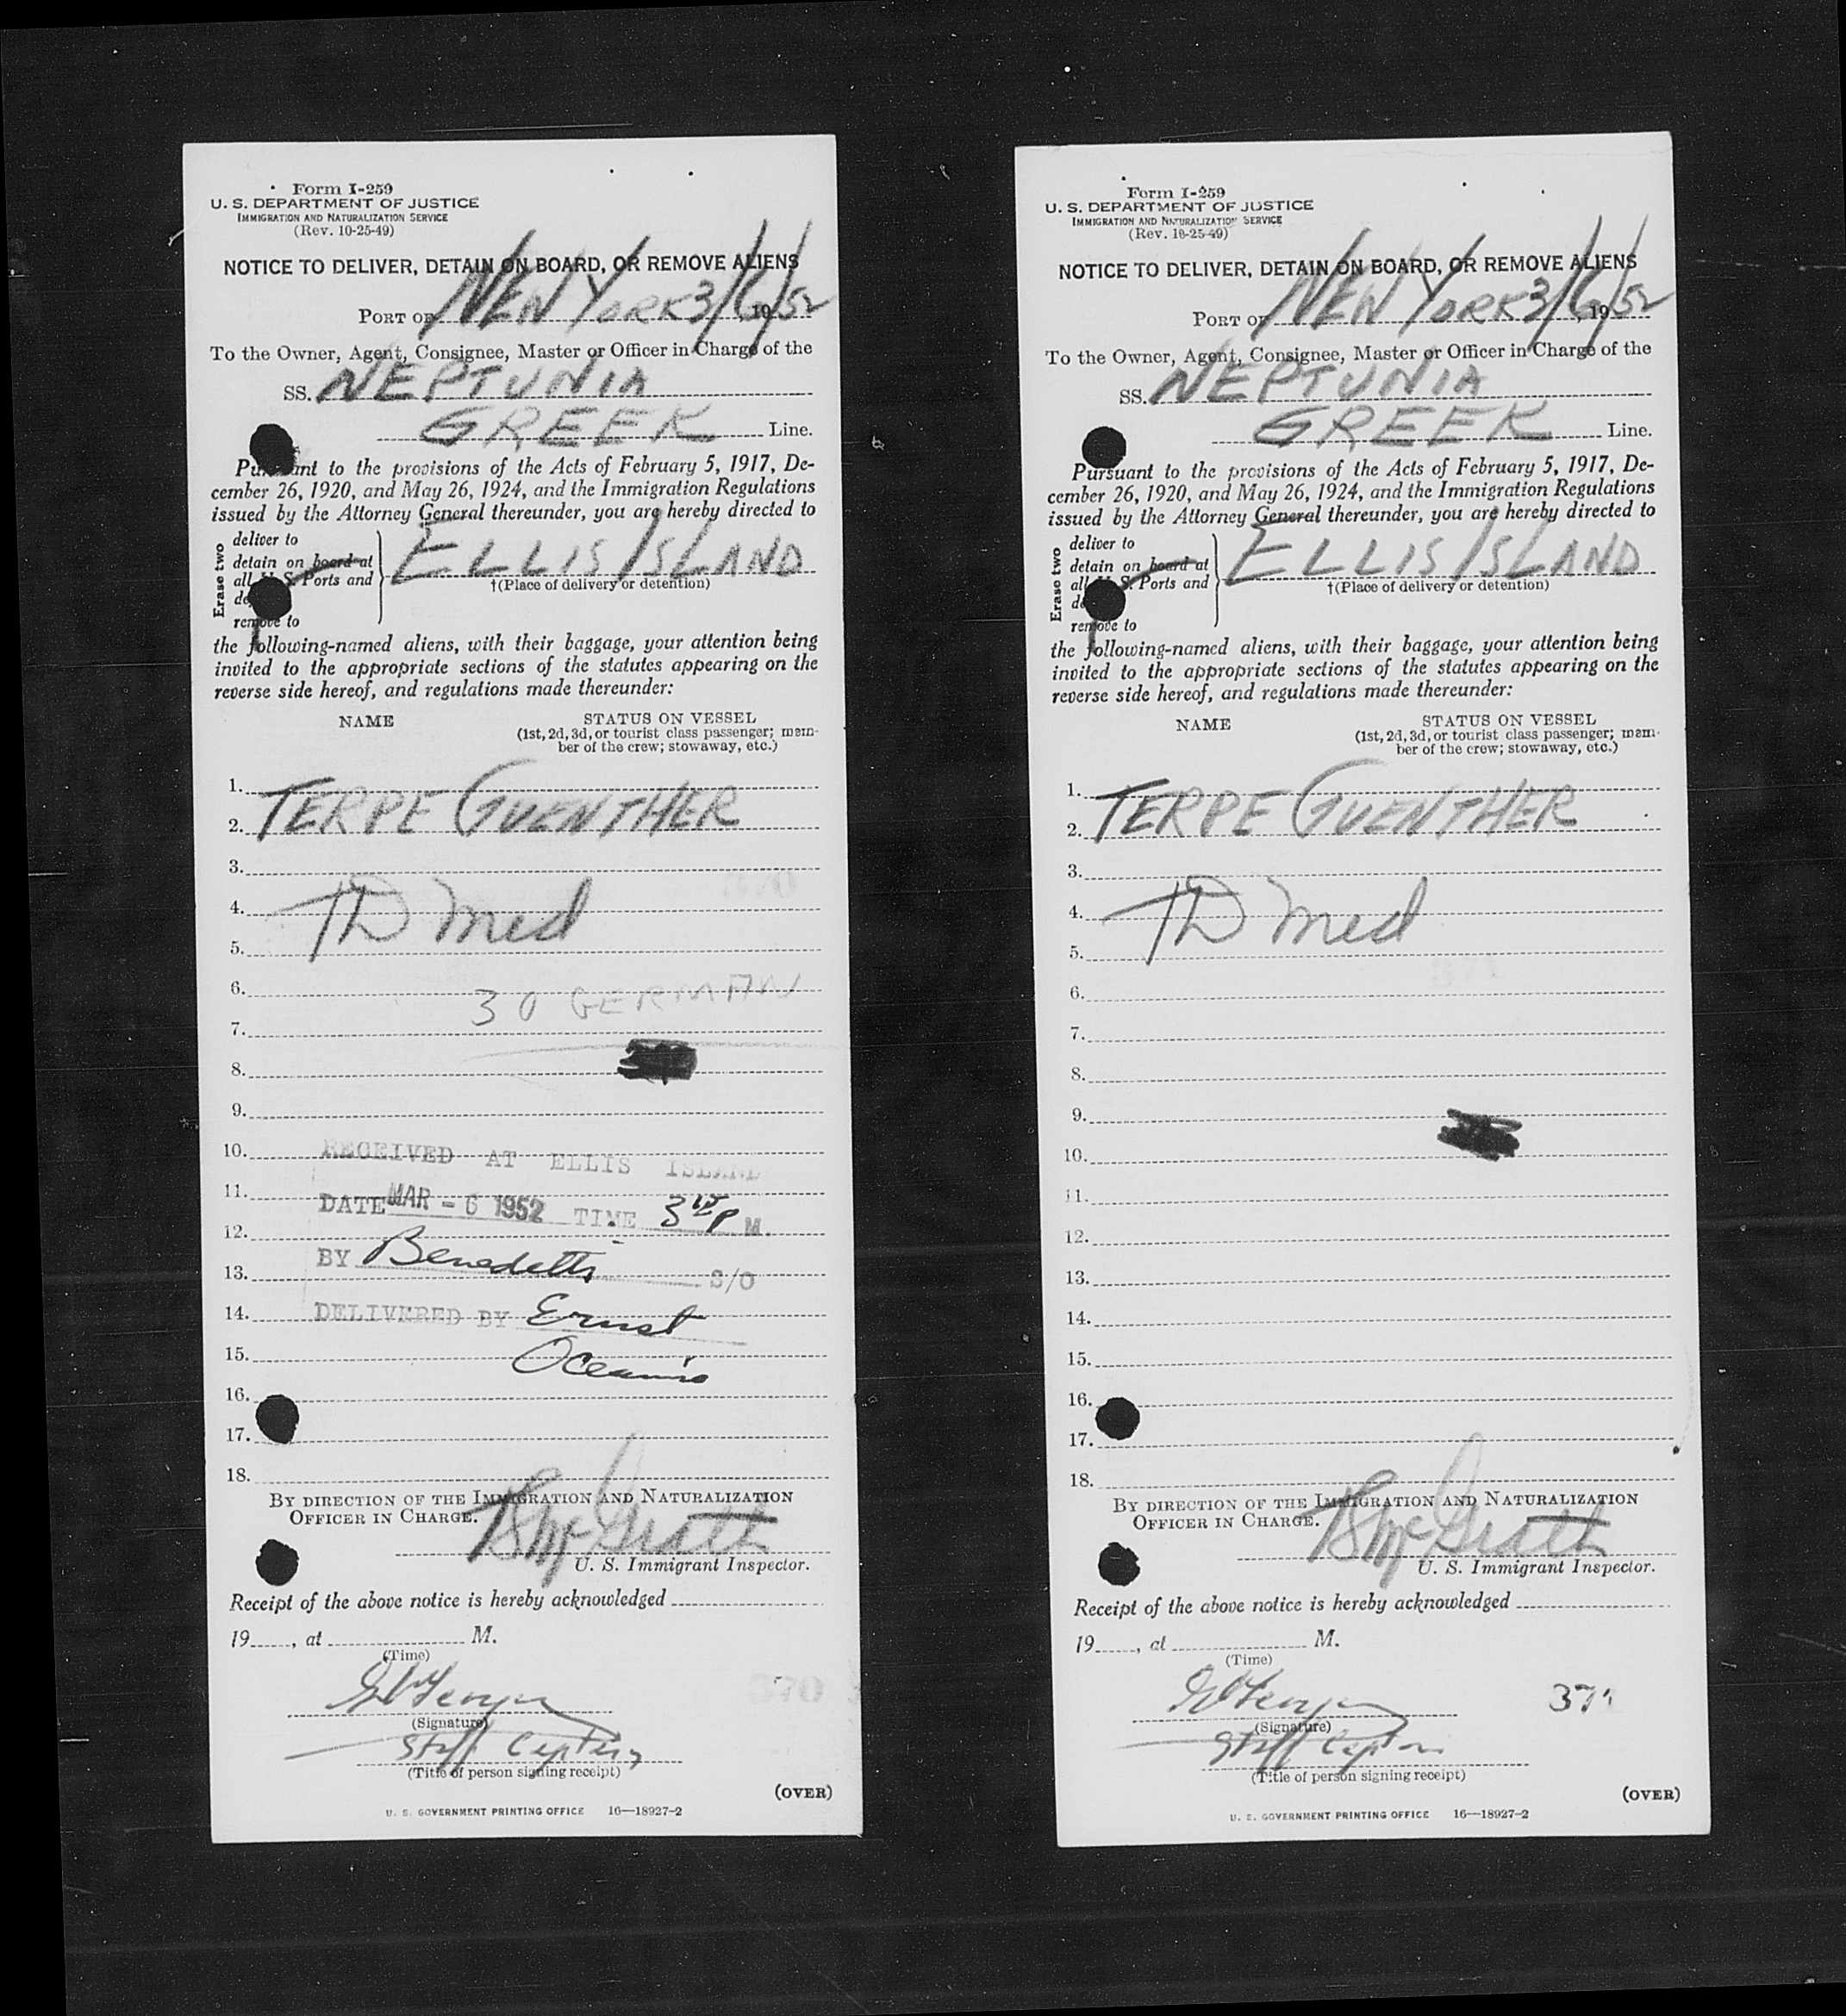 Form I-259
U. S. DEPARTMENT OF JUSTICE
IMMIGRATION AND NATURALIZATION SERVICE
(Rev. 10-25-49)
NOTICE TO DELIVER, DETAIN ON BOARD, OR REMOVE ALIENS
PORT OF NEW YORK 3/6/52, 19
To the Owner, Agent, Consignee, Master or Officer in Charge of the
SS. NEPTUNIA
GREEK Line.
Pursuant to the provisions of the Acts of February 5, 1917, De-
cember 26, 1920, and May 26, 1924, and the Immigration Regulations
issued by the Attorney General thereunder, you are hereby directed to
Erase two
deliver to
detain on board at
all U. S. Ports and
remove to
ELLIS ISLAND
†(Place of delivery or detention)
the following-named aliens, with their baggage, your attention being
invited to the appropriate sections of the statutes appearing on the
reverse side hereof, and regulations made thereunder:
NAME STATUS ON VESSEL
(1st, 2d, 3d, or tourist class passenger; mem-
ber of the crew; stowaway, etc.)
1.
2. TERPE GUENTHER
3.
4. TD Med
5.
6. 30 GERMAN
7.
8.
9.
10. RECEIVED AT ELLIS ISLAND
11. DATE MAR - 6 1952 TIME 3 P M.
12.
13. BY Benedetti S/O
14. DELIVERED BY Ernst
15.
16.
17.
18.
BY DIRECTION OF THE IMMIGRATION AND NATURALIZATION
OFFICER IN CHARGE.
McGrath
U. S. Immigrant Inspector.
Receipt of the above notice is hereby acknowledged
19, at M.
(Time)
370
(Signature)
Staff Captain
(Title of person signing receipt)
(OVER)
U. S. GOVERNMENT PRINTING OFFICE 16—18927-2
Form I-259
U. S. DEPARTMENT OF JUSTICE
IMMIGRATION AND NATURALIZATION SERVICE
(Rev. 10-25-49)
NOTICE TO DELIVER, DETAIN ON BOARD, OR REMOVE ALIENS
PORT OF NEW YORK 3/6/52, 19
To the Owner, Agent, Consignee, Master or Officer in Charge of the
SS. NEPTUNIA
GREEK Line.
Pursuant to the provisions of the Acts of February 5, 1917, De-
cember 26, 1920, and May 26, 1924, and the Immigration Regulations
issued by the Attorney General thereunder, you are hereby directed to
Erase two
deliver to
detain on board at
all U. S. Ports and
remove to
ELLIS ISLAND
†(Place of delivery or detention)
the following-named aliens, with their baggage, your attention being
invited to the appropriate sections of the statutes appearing on the
reverse side hereof, and regulations made thereunder:
NAME STATUS ON VESSEL
(1st, 2d, 3d, or tourist class passenger; mem-
ber of the crew; stowaway, etc.)
1.
2. TERPE GUENTHER
3.
4. TD Med
5.
6.
7.
8.
9.
10.
11.
12.
13.
14.
15.
16.
17.
18.
BY DIRECTION OF THE IMMIGRATION AND NATURALIZATION
OFFICER IN CHARGE.
McGrath
U. S. Immigrant Inspector.
Receipt of the above notice is hereby acknowledged
19, at M.
(Time)
(Signature)
Staff Captain
(Title of person signing receipt)
(OVER)
U. S. GOVERNMENT PRINTING OFFICE 16—18927-2